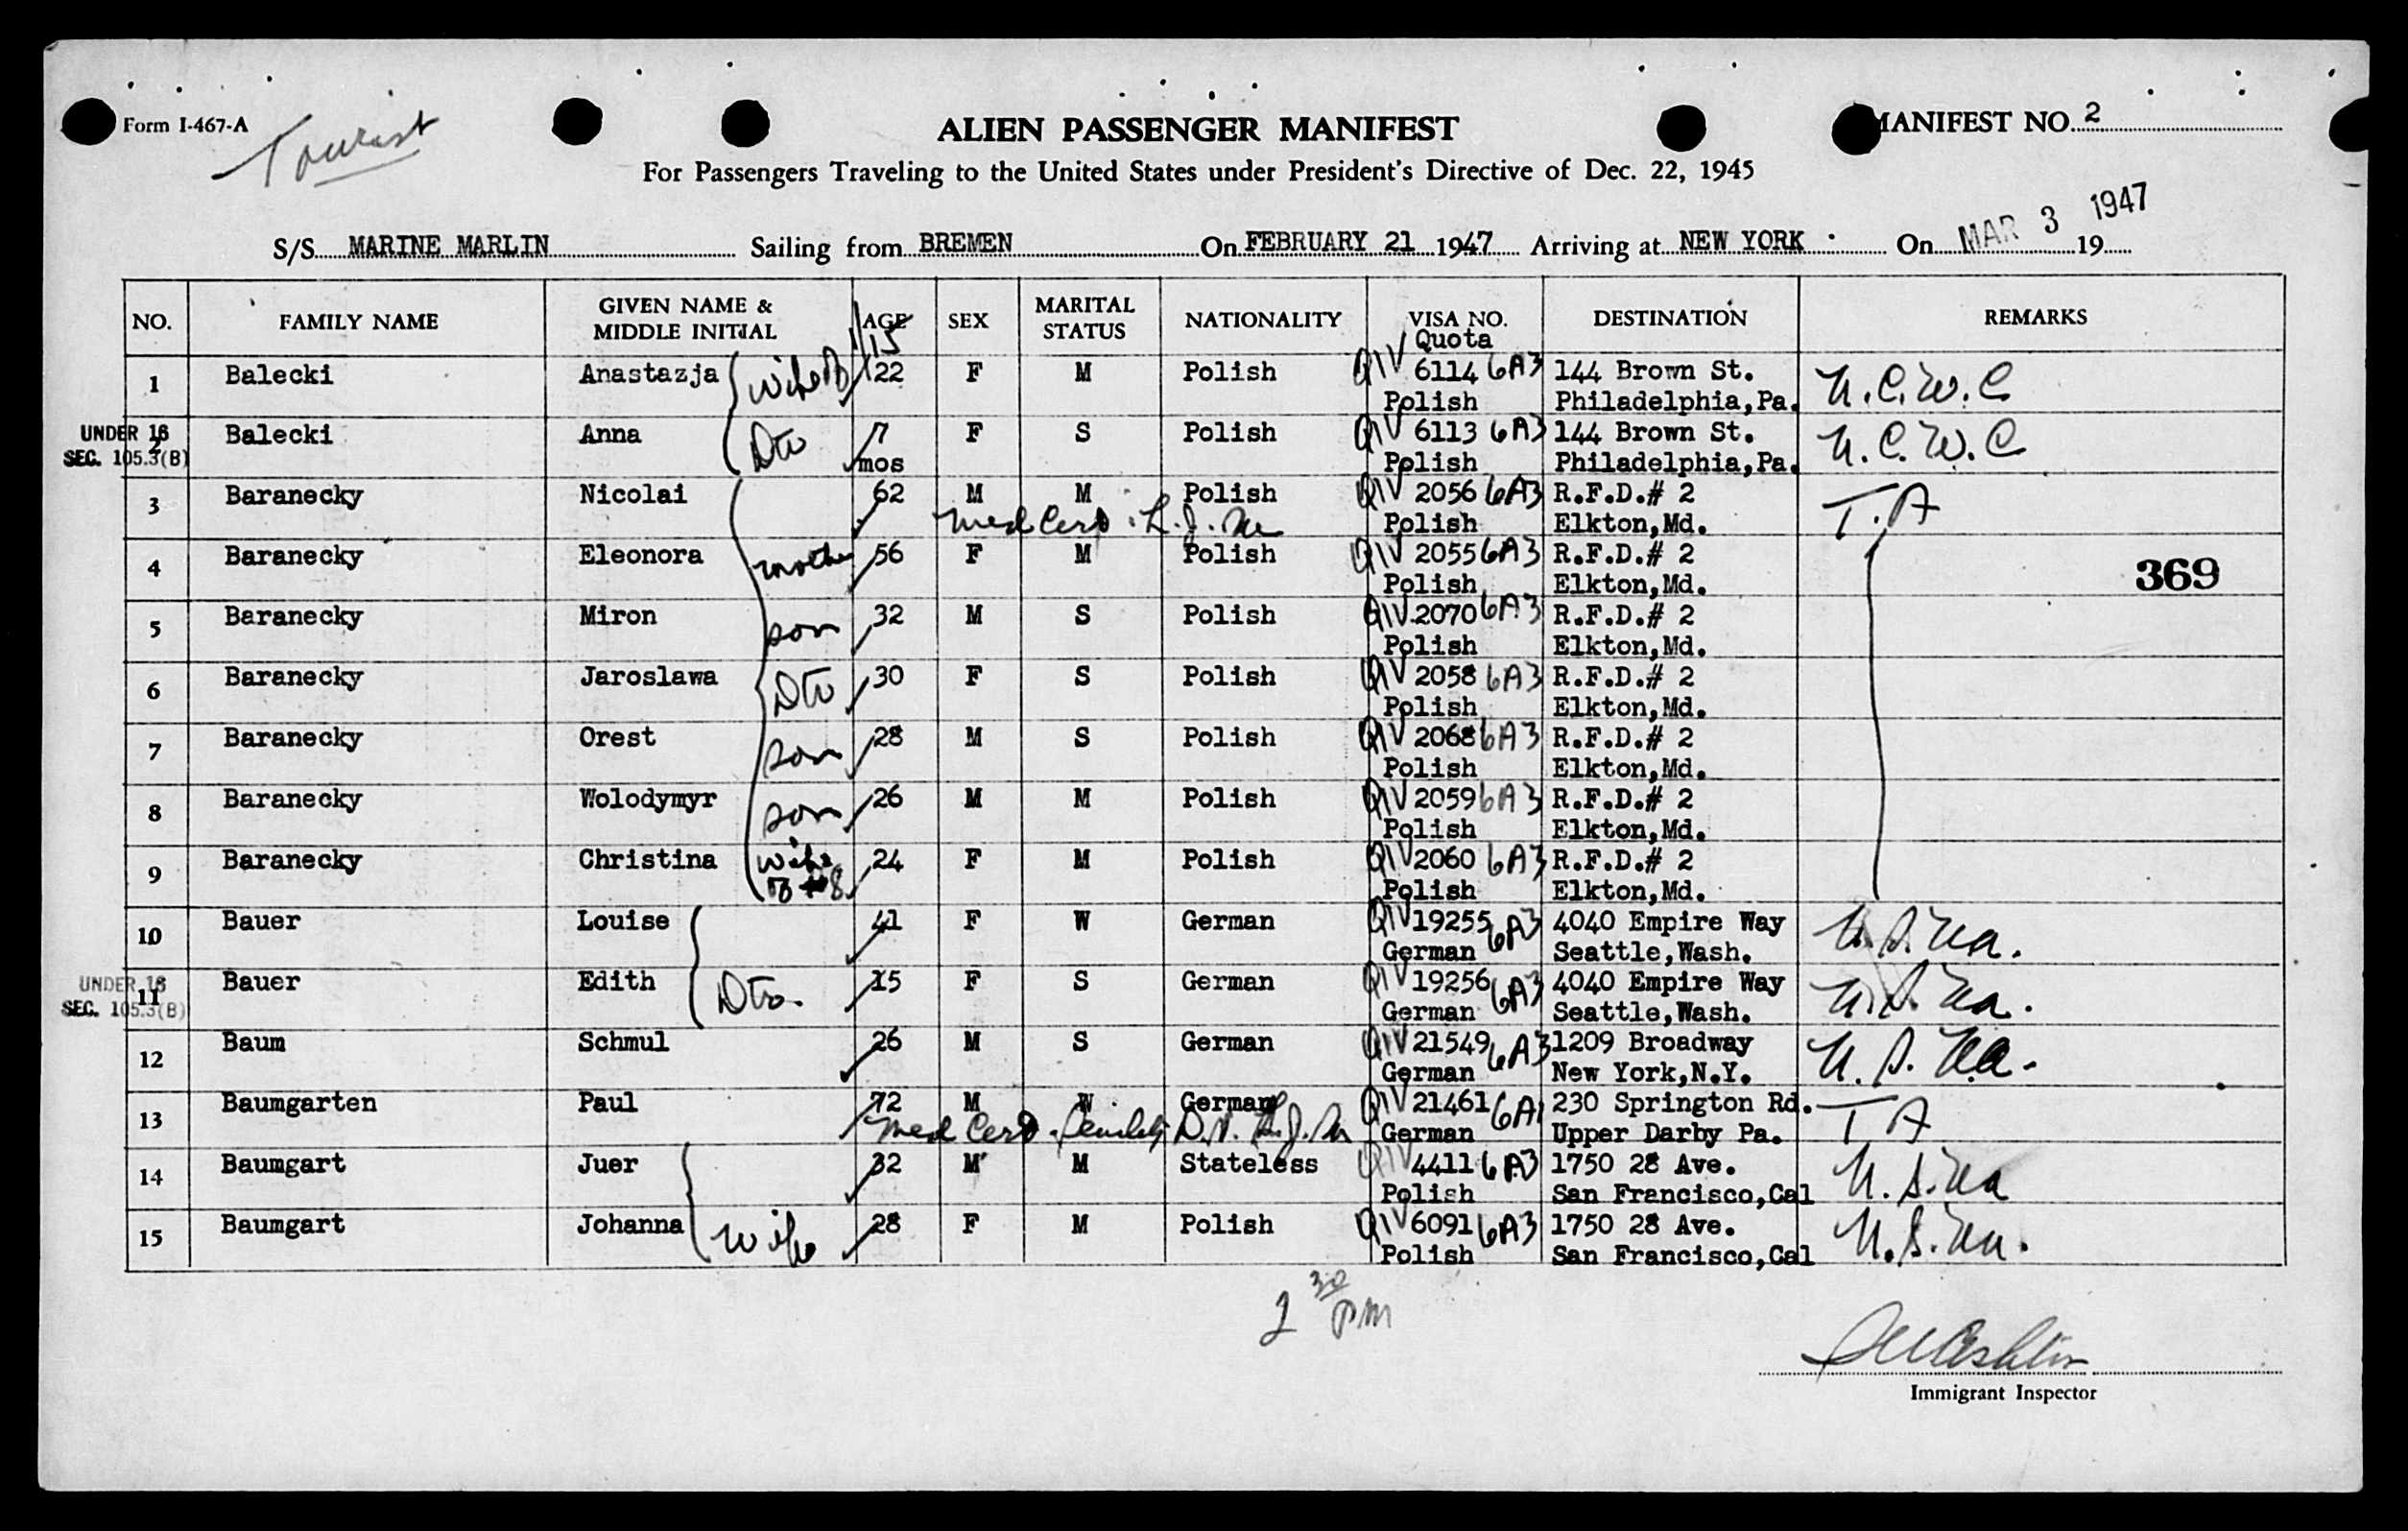 Form I-467-A
Tourist
ALIEN PASSENGER MANIFEST
MANIFEST NO. 2
For Passengers Traveling to the United States under President's Directive of Dec. 22, 1945
S/S MARINE MARLIN Sailing from BREMEN On FEBRUARY 21 1947 Arriving at NEW YORK On MAR 3 1947 19
NO. FAMILY NAME GIVEN NAME & MIDDLE INITIAL AGE SEX MARITAL STATUS NATIONALITY VISA NO. Quota DESTINATION REMARKS
15
1 Balecki Anastazja wife 22 F M Polish QIV 6114 6A3 144 Brown St. N.C.W.C
Polish Philadelphia,Pa.
UNDER 16 SEC. 105.3(B)
2 Balecki Anna Dtr 7 F S Polish QIV 6113 6A3 144 Brown St. N.C.W.C
mos Polish Philadelphia,Pa.
3 Baranecky Nicolai 62 M M Polish QIV 2056 6A3 R.F.D.# 2 T.A
Med Cert. Polish Elkton,Md.
4 Baranecky Eleonora mother 56 F M Polish QIV 2055 6A3 R.F.D.# 2
Polish Elkton,Md.
369
5 Baranecky Miron son 32 M S Polish QIV 2070 6A3 R.F.D.# 2
Polish Elkton,Md.
6 Baranecky Jaroslawa Dtr 30 F S Polish QIV 2058 6A3 R.F.D.# 2
Polish Elkton,Md.
7 Baranecky Orest son 28 M S Polish QIV 2068 6A3 R.F.D.# 2
Polish Elkton,Md.
8 Baranecky Wolodymyr son 26 M M Polish QIV 2059 6A3 R.F.D.# 2
Polish Elkton,Md.
9 Baranecky Christina wife 24 F M Polish QIV 2060 6A3 R.F.D.# 2
#8 Polish Elkton,Md.
10 Bauer Louise 41 F W German QIV 19255 6A3 4040 Empire Way
German Seattle,Wash.
UNDER 16 SEC. 105.3(B)
11 Bauer Edith Dtr. 15 F S German QIV 19256 6A3 4040 Empire Way
German Seattle,Wash.
12 Baum Schmul 26 M S German QIV 21549 6A3 1209 Broadway
German New York,N.Y.
13 Baumgarten Paul 72 M W German QIV 21461 6A1 230 Springton Rd. T A
Med Cert. German Upper Darby Pa.
14 Baumgart Juer 32 M M Stateless QIV 4411 6A3 1750 28 Ave.
Polish San Francisco,Cal
15 Baumgart Johanna wife 28 F M Polish QIV 6091 6A3 1750 28 Ave.
Polish San Francisco,Cal
2 30 PM
Immigrant Inspector